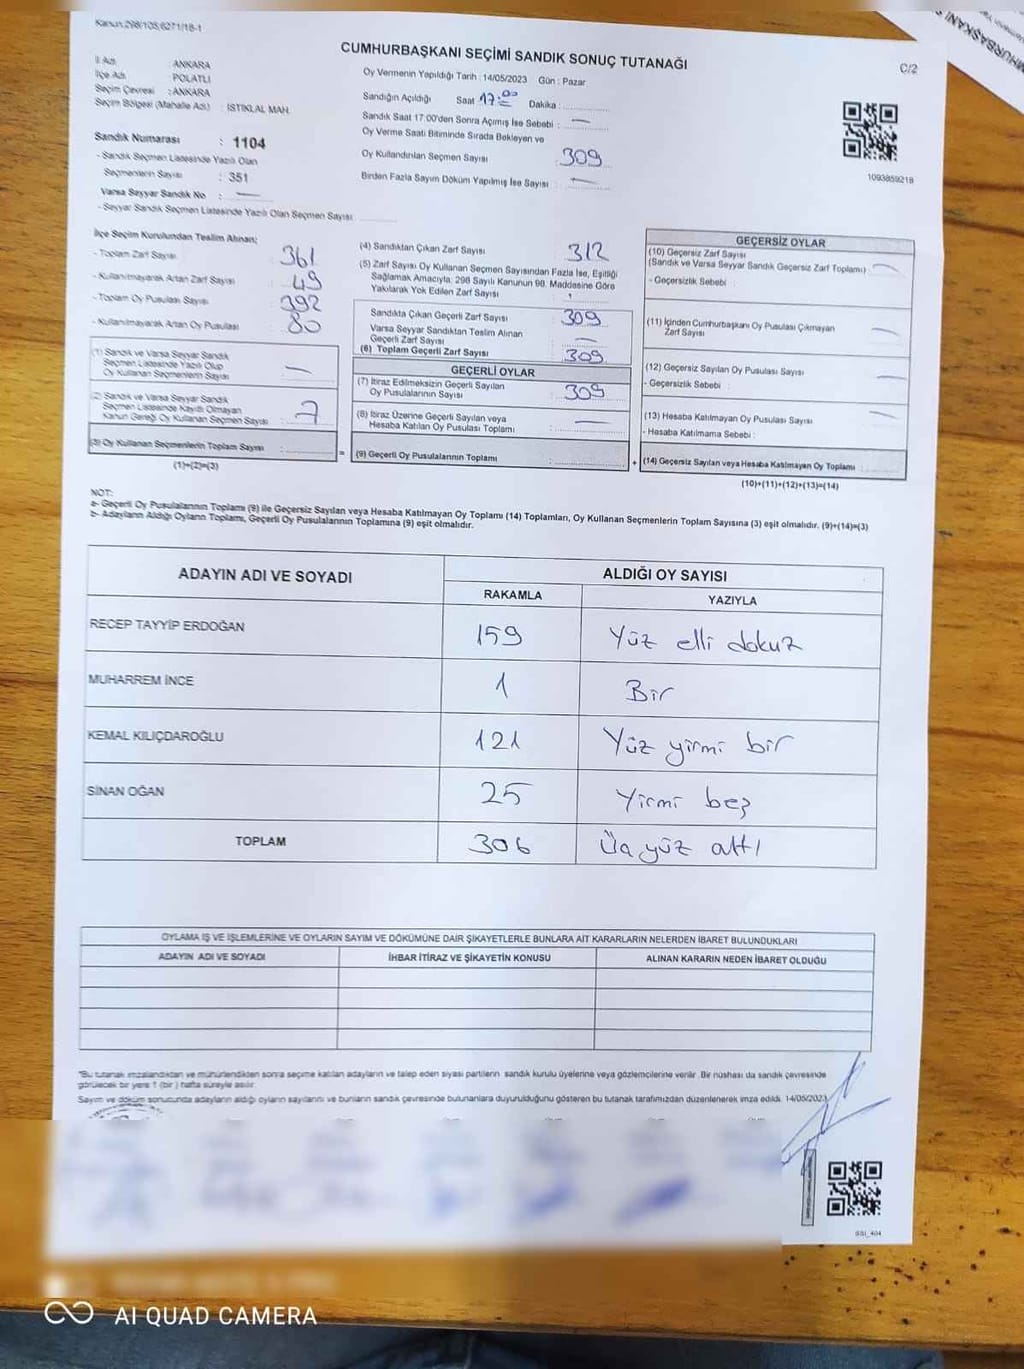 Kanun:298/105,6271/18-1
CUMHURBAŞKANI SEÇİMİ SANDIK SONUÇ TUTANAĞI
C/2
İl Adı : ANKARA
İlçe Adı : POLATLI
Seçim Çevresi : ANKARA
Seçim Bölgesi (Mahalle Adı) : İSTİKLAL MAH.
Sandık Numarası : 1104
- Sandık Seçmen Listesinde Yazılı Olan
Seçmenlerin Sayısı : 351
Varsa Seyyar Sandık No : —
- Seyyar Sandık Seçmen Listesinde Yazılı Olan Seçmen Sayısı
Oy Vermenin Yapıldığı Tarih : 14/05/2023 Gün : Pazar
Sandığın Açıldığı Saat 17:00 Dakika :
Sandık Saat 17:00'den Sonra Açılmış İse Sebebi : —
Oy Verme Saati Bitiminde Sırada Bekleyen ve
Oy Kullandırılan Seçmen Sayısı 309
Birden Fazla Sayım Döküm Yapılmış İse Sayısı : —
1093859218
İlçe Seçim Kurulundan Teslim Alınan;
- Toplam Zarf Sayısı : 361
- Kullanılmayarak Artan Zarf Sayısı : 49
- Toplam Oy Pusulası Sayısı : 392
- Kullanılmayarak Artan Oy Pusulası : 80
(1) Sandık ve Varsa Seyyar Sandık
Seçmen Listesinde Yazılı Olup
Oy Kullanan Seçmenlerin Sayısı : —
(2) Sandık ve Varsa Seyyar Sandık
Seçmen Listesinde Kayıtlı Olmayan
Kanun Gereği Oy Kullanan Seçmen Sayısı : 7
(3) Oy Kullanan Seçmenlerin Toplam Sayısı :
(1)+(2)=(3)
(4) Sandıktan Çıkan Zarf Sayısı 312
(5) Zarf Sayısı Oy Kullanan Seçmen Sayısından Fazla İse, Eşitliği
Sağlamak Amacıyla; 298 Sayılı Kanunun 98. Maddesine Göre
Yakılarak Yok Edilen Zarf Sayısı
Sandıkta Çıkan Geçerli Zarf Sayısı : 309
Varsa Seyyar Sandıktan Teslim Alınan
Geçerli Zarf Sayısı : —
(6) Toplam Geçerli Zarf Sayısı : 309
GEÇERLİ OYLAR
(7) İtiraz Edilmeksizin Geçerli Sayılan
Oy Pusulalarının Sayısı : 309
(8) İtiraz Üzerine Geçerli Sayılan veya
Hesaba Katılan Oy Pusulası Toplamı : —
= (9) Geçerli Oy Pusulalarının Toplamı :
GEÇERSİZ OYLAR
(10) Geçersiz Zarf Sayısı
(Sandık ve Varsa Seyyar Sandık Geçersiz Zarf Toplamı) —
- Geçersizlik Sebebi :
(11) İçinden Cumhurbaşkanı Oy Pusulası Çıkmayan
Zarf Sayısı —
(12) Geçersiz Sayılan Oy Pusulası Sayısı —
- Geçersizlik Sebebi :
(13) Hesaba Katılmayan Oy Pusulası Sayısı —
- Hesaba Katılmama Sebebi :
+ (14) Geçersiz Sayılan veya Hesaba Katılmayan Oy Toplamı :
(10)+(11)+(12)+(13)=(14)
NOT:
a- Geçerli Oy Pusulalarının Toplamı (9) ile Geçersiz Sayılan veya Hesaba Katılmayan Oy Toplamı (14) Toplamları, Oy Kullanan Seçmenlerin Toplam Sayısına (3) eşit olmalıdır. (9)+(14)=(3)
b- Adayların Aldığı Oyların Toplamı, Geçerli Oy Pusulalarının Toplamına (9) eşit olmalıdır.
ADAYIN ADI VE SOYADI
ALDIĞI OY SAYISI
RAKAMLA YAZIYLA
RECEP TAYYİP ERDOĞAN 159 Yüz elli dokuz
MUHARREM İNCE 1 Bir
KEMAL KILIÇDAROĞLU 121 Yüz yirmi bir
SİNAN OĞAN 25 Yirmi beş
TOPLAM 306 Üç yüz altı
OYLAMA İŞ VE İŞLEMLERİNE VE OYLARIN SAYIM VE DÖKÜMÜNE DAİR ŞİKAYETLERLE BUNLARA AİT KARARLARIN NELERDEN İBARET BULUNDUKLARI
ADAYIN ADI VE SOYADI İHBAR İTİRAZ VE ŞİKAYETİN KONUSU ALINAN KARARIN NEDEN İBARET OLDUĞU
"Bu tutanak imzalandıktan ve mühürlendikten sonra seçime katılan adayların ve talep eden siyasi partilerin sandık kurulu üyelerine veya gözlemcilerine verilir. Bir nüshası da sandık çevresinde
görülecek bir yere 1 (bir) hafta süreyle asılır.
Sayım ve döküm sonucunda adayların aldığı oyların sayılarını ve bunların sandık çevresinde bulunanlara duyurulduğunu gösteren bu tutanak tarafımızdan düzenlenerek imza edildi. 14/05/2023
AI QUAD CAMERA